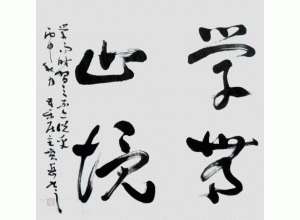 学無
止境
学而时习之不亦说乎
丙申秋月